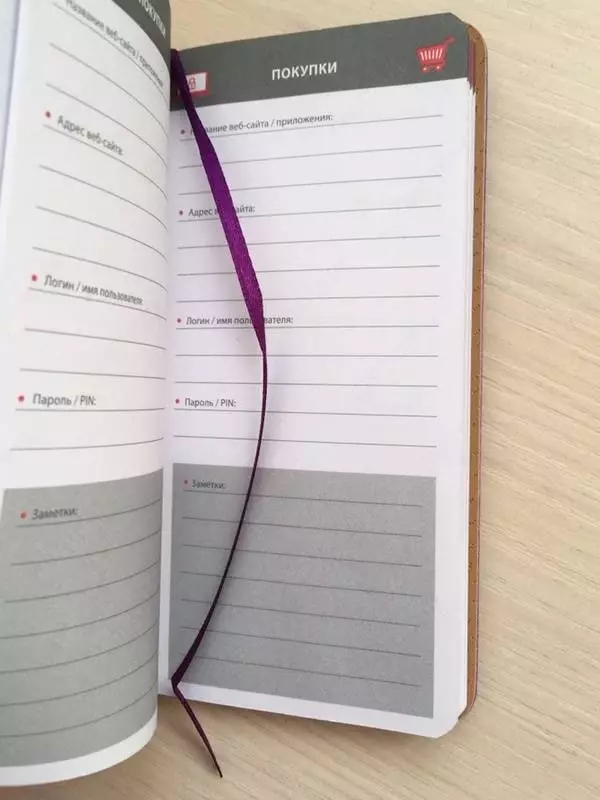 ПОКУПКИ
Название веб-сайта / приложения:
Адрес веб-сайта:
Логин / имя пользователя:
Пароль / PIN:
Заметки:
ПОКУПКИ
Название веб-сайта / приложения:
Адрес веб-сайта:
Логин / имя пользователя:
Пароль / PIN:
Заметки: